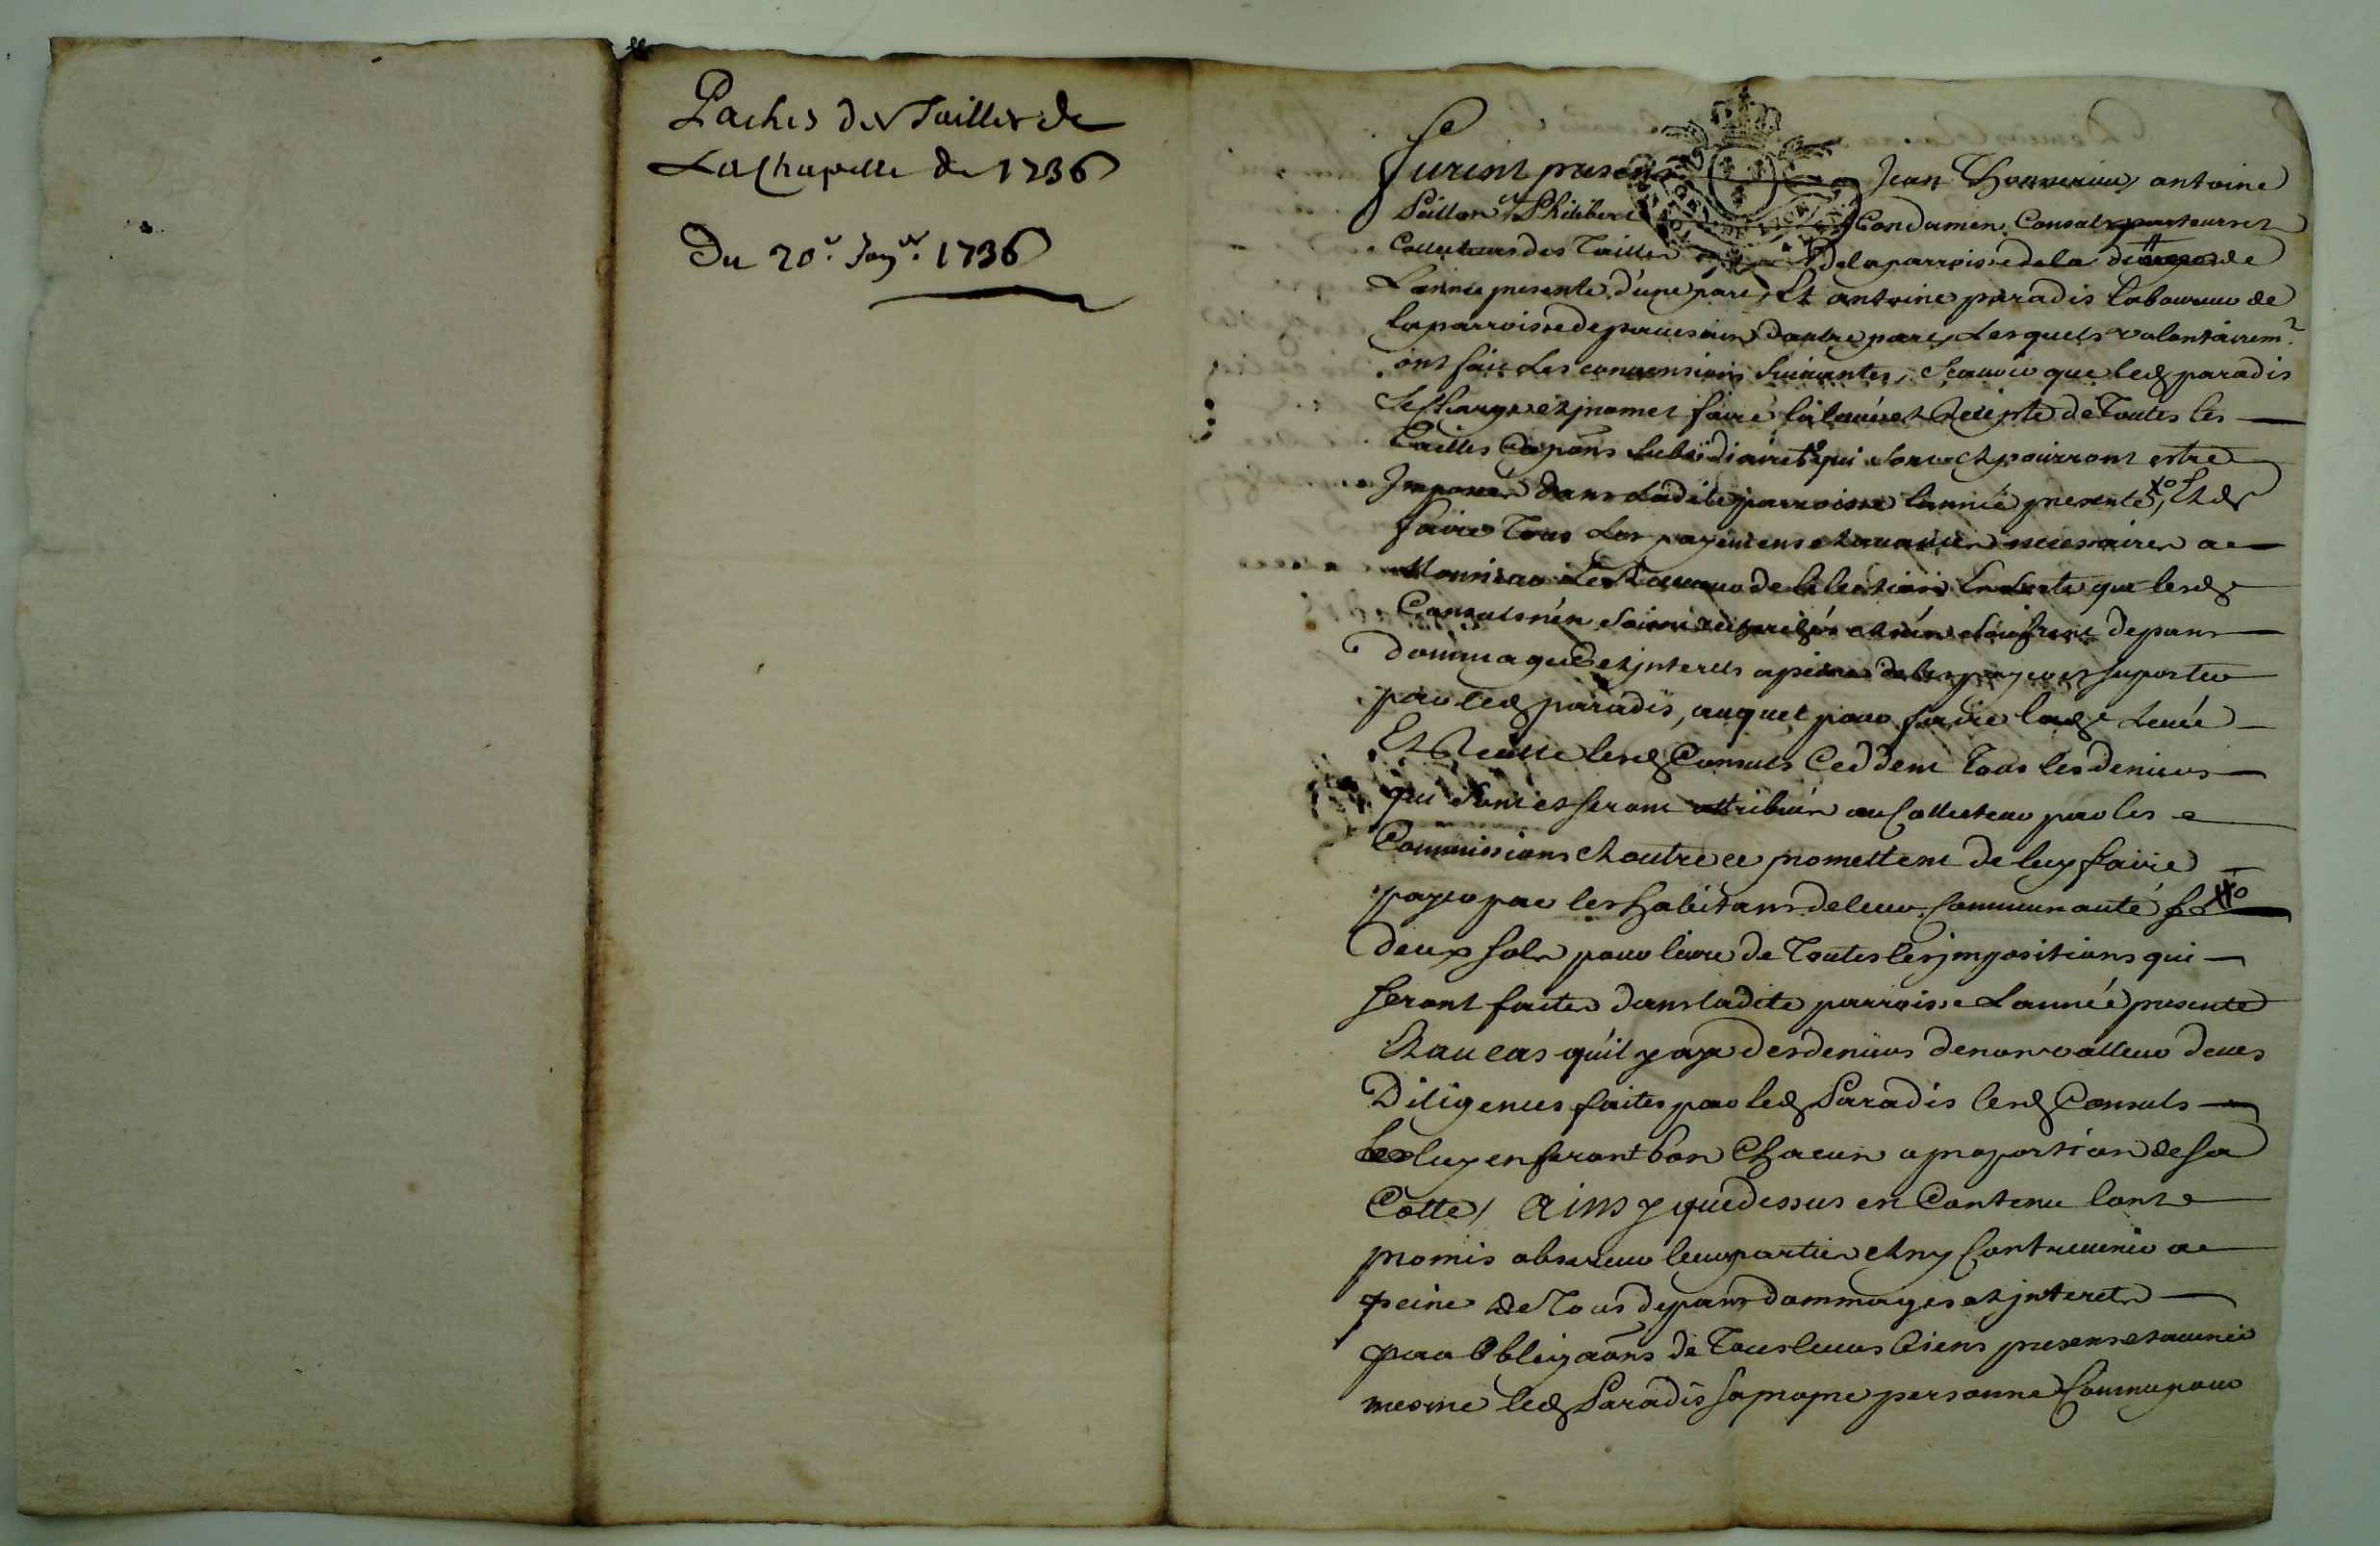 Paches des Tailles de
La Chapelle de 1736
Du 20e Janer 1736
Furent presens Jean antoine
Philibert Condamen Consuls
Collecteurs des Tailles de la parroisse de la
L'année presente d'une part, Et antoine paradis laboureur de
la parroisse de d'autre part, Lesquels volontairemt
ont fait Les convensions suivantes, scavoir que led paradis
se charge et promet faire la levée et recepte de Toutes les
Tailles subsidiaires qui sont et pourront estre
Imposées dans Ladite parroisse l'année presente, Et de
faire Tous Les payemens et avances necessaires a
Monsieur Le Receveur de l'élection En sorte que lesd
Consuls n'en soient et n'en soufrent depans
dommages et interets a peine de les payer et suporter
par led paradis, auquel pour faire lade Levée
Et Recette lesd Consuls Ceddent Tous les deniers
qui sont et seront attribués au Collecteur par les
Commissions et outre ce promettent de luy faire
payer par les habitans de leur Communauté
deux sols pour livre de Toutes les impositions qui
seront faites dans ladite parroisse L'année presente
Et au cas qu'il y aye des deniers de non valleur deues
Diligences faites par led Paradis lesd Consuls
luy en feront bon Chacun a proportion de sa
Cotte, Ainsy que dessus en Contenu l'ont
promis observer leurs parties et ny Contrevenir a
peine de Tous depans dommages et interets
par Obligaõns de Tous leurs biens presens et avenir
mesme led Paradis sa propre personne Comme pour